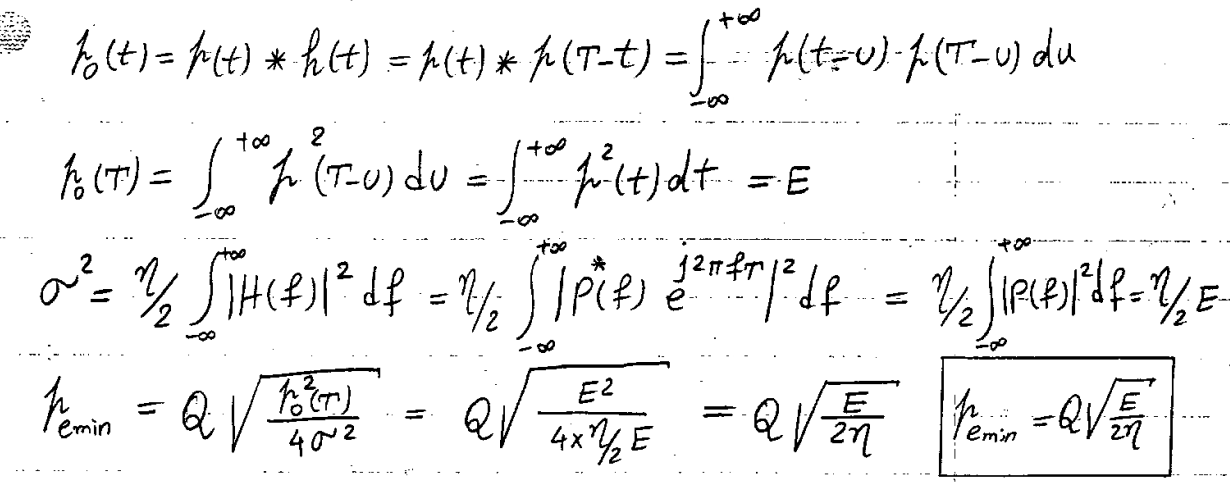 p₀(t) = p(t) * h(t) = p(t) * p(T-t) = ∫_{-∞}^{+∞} p(t-u) · p(T-u) du
p₀(T) = ∫_{-∞}^{+∞} p²(T-u) du = ∫_{-∞}^{+∞} p²(t) dt = E
σ² = η/2 ∫_{-∞}^{+∞} |H(f)|² df = η/2 ∫_{-∞}^{+∞} |P*(f) e^{j2πfT}|² df = η/2 ∫_{-∞}^{+∞} |P(f)|² df = η/2 E
p_{e min} = Q √(p₀²(T) / 4σ²) = Q √(E² / 4×η/2 E) = Q √(E / 2η) p_{e min} = Q √(E / 2η)